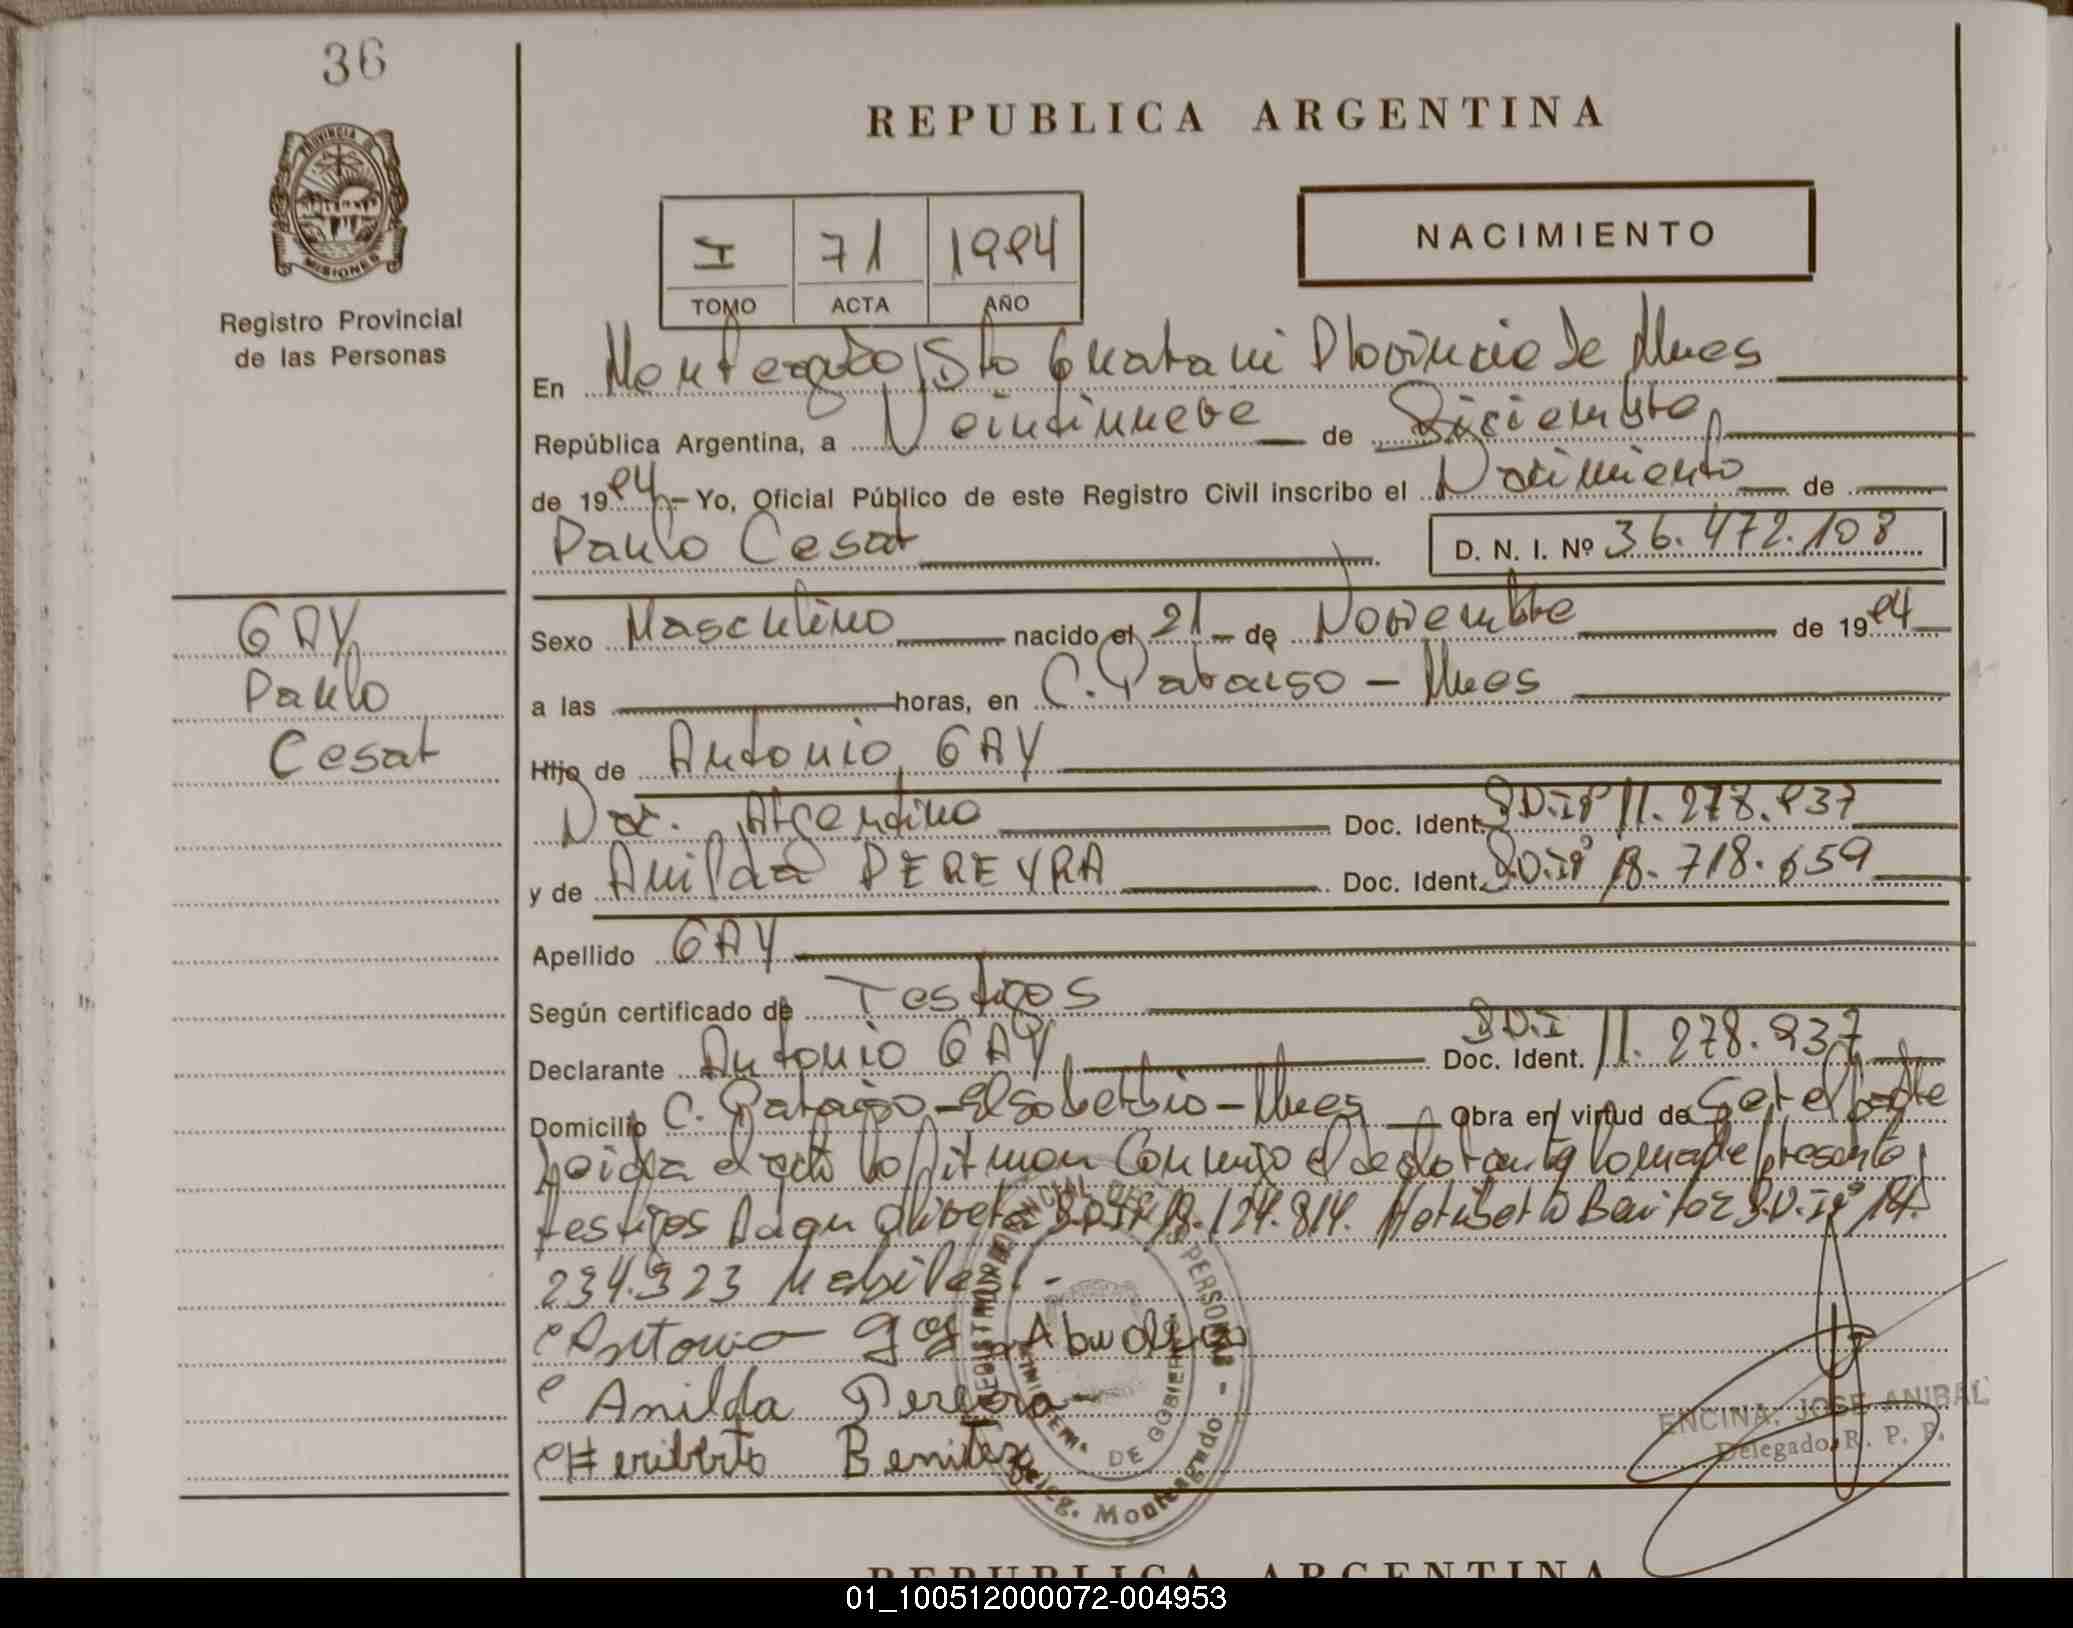 36
REPUBLICA ARGENTINA
PROVINCIA DE
MISIONES
Registro Provincial
de las Personas
I 71 1994
TOMO ACTA AÑO
NACIMIENTO
En Monteagudo Dto Guarani Provincia de Mnes
República Argentina, a Veintinueve de Diciembre
de 1994 - Yo, Oficial Público de este Registro Civil inscribo el Nacimiento de
Paulo Cesar D. N. I. Nº 36.472.108
GAY
Paulo
Cesar
Sexo Masculino nacido el 21 de Noviembre de 1994
a las horas, en C. Paraiso - Mnes
Hijo de Antonio GAY
Nac. Argentino Doc. Ident. D.N.Iº 11.278.937
y de Anilda PEREYRA Doc. Ident. D.N.Iº 18.718.659
Apellido GAY
Según certificado de Testigos
Declarante Antonio GAY Doc. Ident. D.N.I 11.278.937
Domicilio C. Paraiso - El Soberbio - Mnes Obra en virtud de Ser el padre
Leida el acta la firman Conmigo el declarante la madre presente
testigos Olivera D.N.Iº 18.124.814. Heriberto Benitez D.N.Iº 14.
234.323
Antonio Gay
Anilda Pereyra
Heriberto Benitez
REGISTRO PROVINCIAL DE LAS PERSONAS
MINISTERIO DE GOBIERNO
Deleg. Monteagudo
ENCINA, JOSE ANIBAL
Delegado R. P. P.
REPUBLICA ARGENTINA
01_100512000072-004953